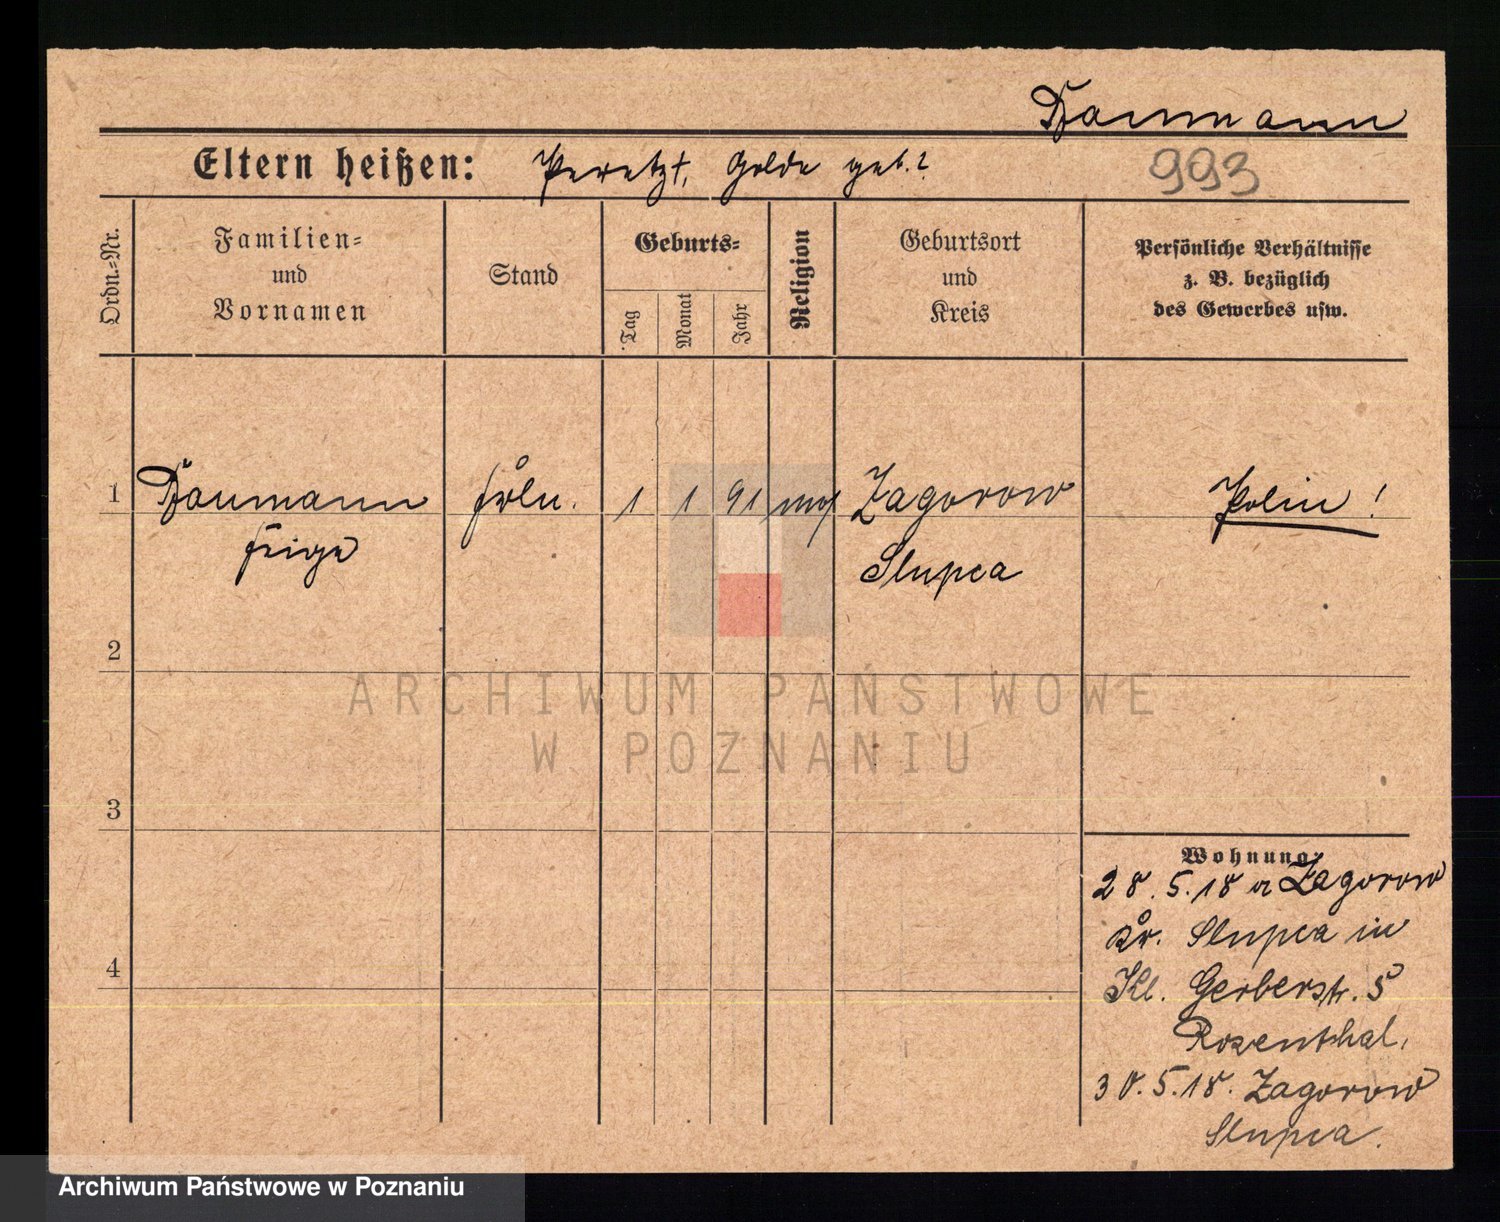 Baumann
Eltern heißen: Peretzt, Golde geb.?
993
Ordn.=Nr.
Familien=
und
Vornamen
Stand
Geburts=
Tag
Monat
Jahr
Religion
Geburtsort
und
Kreis
Persönliche Verhältnisse
z. B. bezüglich
des Gewerbes usw.
1 Baumann Frln. 1 1 91 mos Zagorow Polin!
Feige Slupca
2
3
4
Wohnung:
28.5.18 v Zagorow
Kr. Slupca in
Kl. Gerberstr. 5
Rozenthal.
30.5.18. Zagorow
Slupca.
ARCHIWUM PAŃSTWOWE
W POZNANIU
Archiwum Państwowe w Poznaniu